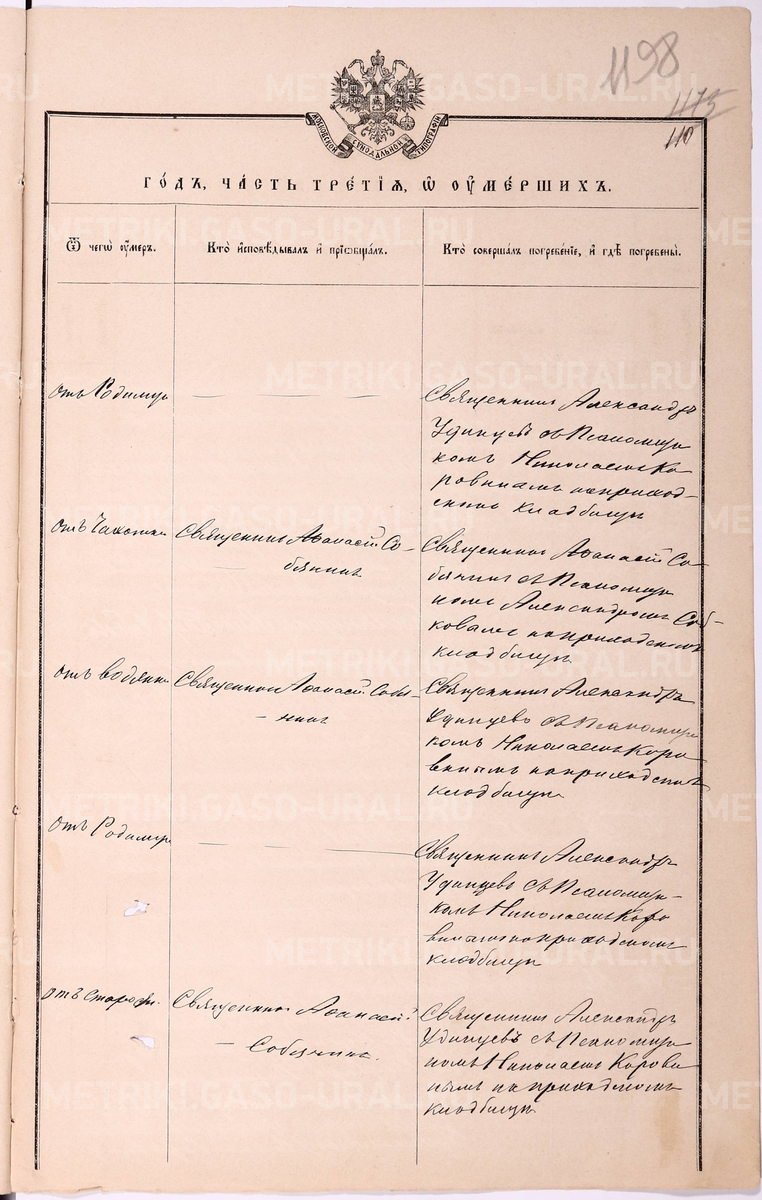 1198
1175
110
МОСКОВСКОЙ СѴНОДАЛЬНОЙ ТИПОГРАФІИ
ГО́ДЪ, ЧА́СТЬ ТРЕ́ТІѦ, Ѽ ОУМЕ́РШИХЪ.
Ѿ чегѡ̀ оу́меръ.
Кто̀ и҆сповѣ́дывалъ и҆ прїѡбща́лъ.
Кто̀ соверша́лъ погребе́нїе, и҆ гдѣ̀ погребены̀.
отъ Родимца
Священникъ Александръ
Удинцевъ съ Псаломщи
комъ Николаемъ Ко
ровинымъ на приход-
скомъ кладбищѣ
отъ Чахотки
Священникъ Аѳанасій Со-
бянинъ
Священникъ Аѳанасій Со-
бянинъ съ Псаломщи
комъ Александромъ
на приходскомъ
кладбищѣ
отъ водянки
Священникъ Аѳанасій Собя-
нинъ
Священникъ Александръ
Удинцевъ съ Псаломщи
комъ Николаемъ Коро
винымъ на приходскомъ
кладбищѣ
отъ Родимца
Священникъ Александръ
Удинцевъ съ Псаломщи-
комъ Николаемъ Коро
винымъ на приходскомъ
кладбищѣ
отъ старости.
Священникъ Аѳанасій
Собянинъ.
Священникъ Александръ
Удинцевъ съ Псаломщи
комъ Николаемъ Корови
нымъ на приходскомъ
кладбищѣ
METRIKI.GASO-URAL.RU